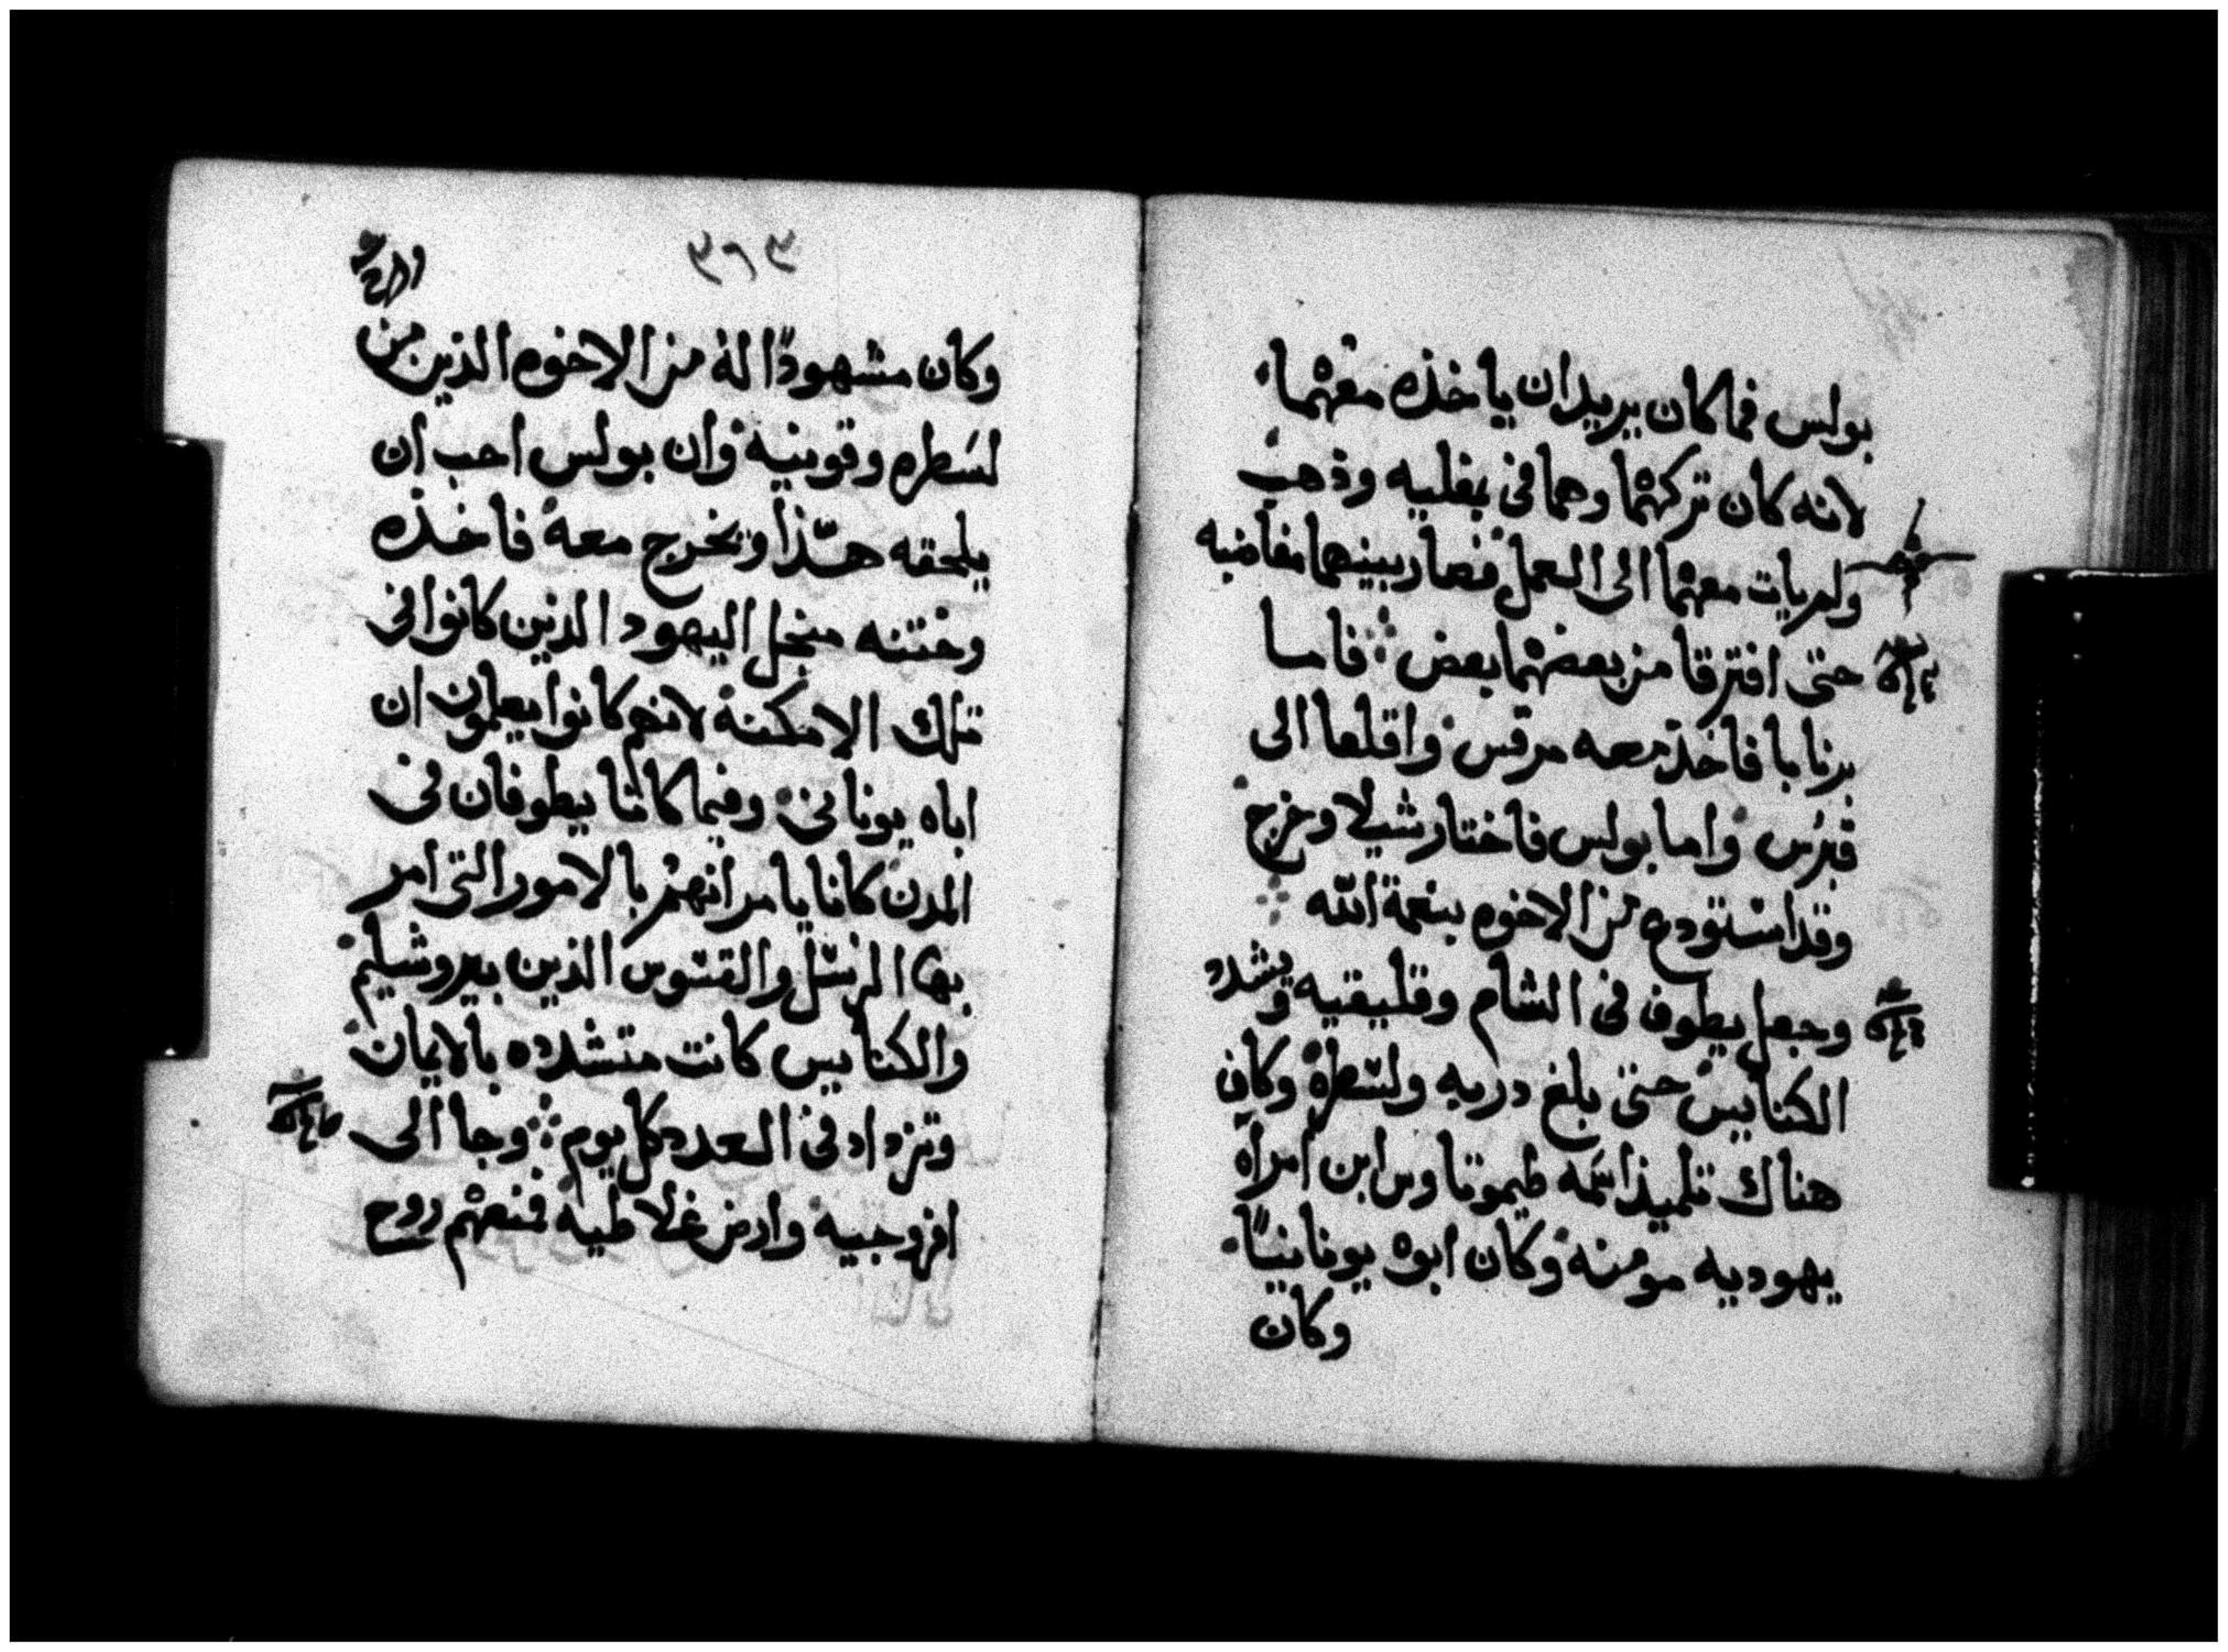 بولس فما كان يريد ان ياخذه معهما
لانه كان تركهما وهما في بمفليه وذهب
ولم يات معهما الى العمل فصار بينهما مغاضبه
حتى افترقا من بعضهما بعض فاما
برنابا فاخذ معه مرقس واقلعا الى
قبرس واما بولس فاختار شيلا وخرج
وقد استودع من الاخوه بنعمة الله
وجعل يطوف في الشام وقليقيه ويشدد
الكنايس حتى بلغ دربه ولسطره وكان
هناك تلميذ اسمه طيموتاوس ابن امراه
يهوديه مومنه وكان ابوه يونانيًا
وكان
٣٦٣
وكان مشهودًا له من الاخوه الذين من
لسطره وقونيه وان بولس احب ان
يلحقه هذا ويخرج معه فاخذه
وختنه منجل اليهود الذين كانوا في
تلك الامكنه لانهم كانوا يعلمون ان
اباه يوناني وفيما كانا يطوفان في
المدن كانا يامرانهم بالامور التي امر
بها الرسل والقسوس الذين بيروشليم
والكنايس كانت متشدده بالايمان
وتزداد في العدد كل يوم وجا الى
افروجيه وارض غلاطيه فمنعهم روح